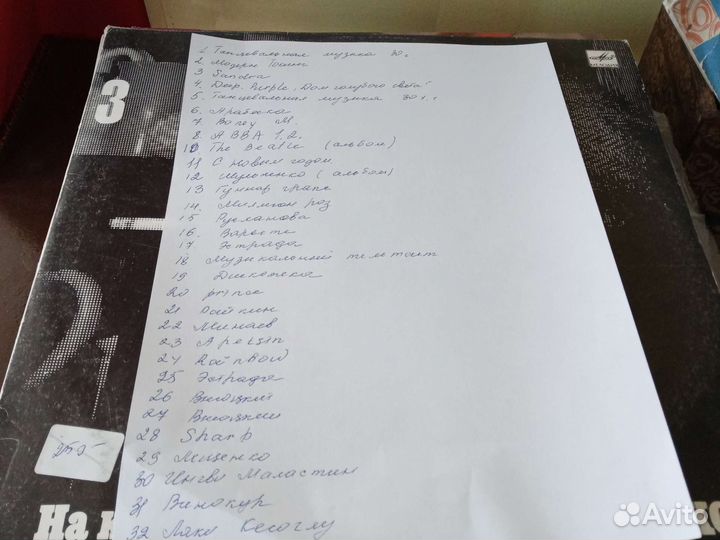 1 Танцевальная музыка 30 г
2. Модерн Токинг
3 Sandra
4. Deep Purple, Дом голубого света
5. Танцевальная музыка 30 г. г
6. Арабеска
7 Boney M.
8. ABBA 1, 2.
10 The Beatle (альбом)
11 С новым годом
12 (альбом)
13 Гуннар грапс
14. Миллион роз
15 Русланова
16. Варьете
17 Эстрада
18 Музыкальный
19 Дискотека
20 prince
21 Райкин
22 Минаев
23 Apelsin
24 Rainbow
25 Эстрада
26 Высоцкий
27 Высоцкий
28 Sharp
29 Мищенко
30 Ингви Маластин
31 Винокур
32 Лаки Кесоглу
3
21
МЕЛОДИЯ
На
Avito